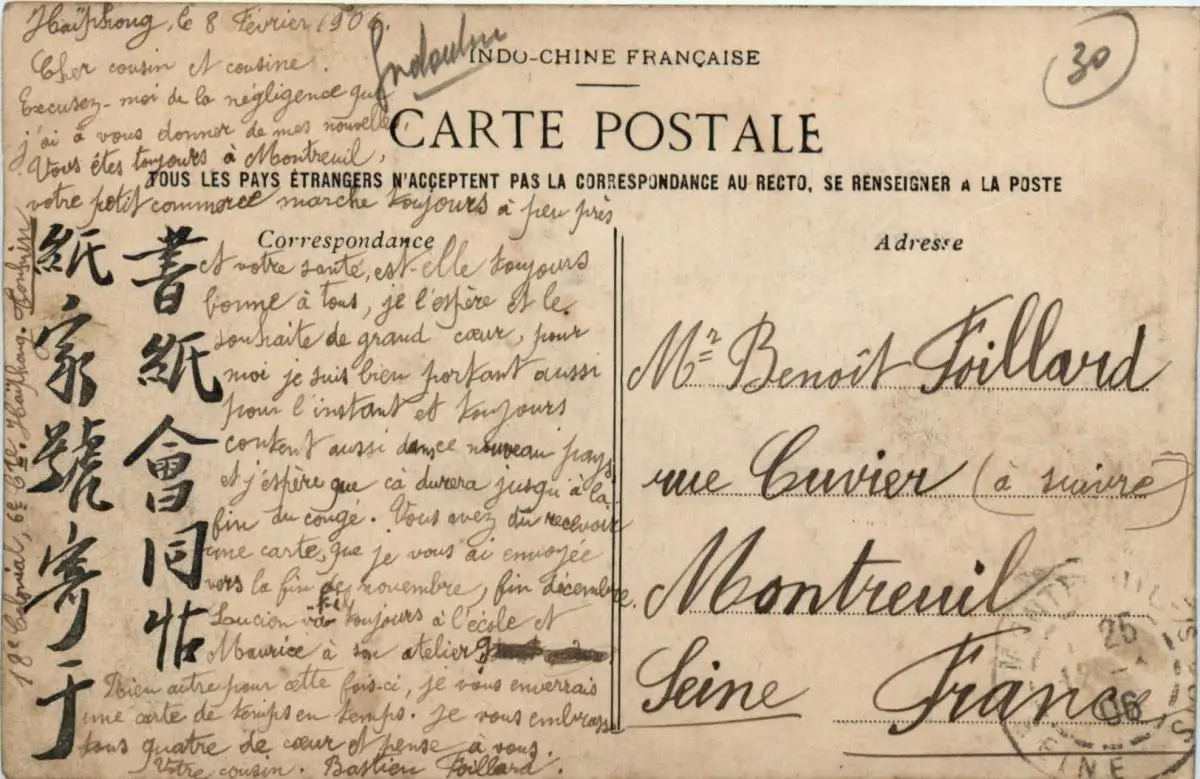 Haïphong, le 8 Février 1906.
Cher cousin et cousine.
Excusez-moi de la négligence que
j'ai à vous donner de mes nouvelles,
Vous êtes toujours à Montreuil,
votre petit commerce marche toujours à peu près
et votre santé, est-elle toujours
bonne à tous, je l'espère et le
souhaite de grand cœur, pour
moi je suis bien portant aussi
pour l'instant et toujours
content aussi dans ce nouveau pays
et j'espère que cà durera jusqu'à la
fin du congé. Vous avez du recevoir
une carte, que je vous ai envoyée
vers la fin de novembre, fin décembre.
toujours à l'école et
Maurice à son atelier
Rien autre pour cette fois-ci, je vous enverrais
une carte de temps en temps. Je vous embrasse
tous quatre de cœur et pense à vous.
Votre cousin. Bastien Foillard.
書紙會同帖
紙家號寄于
18e Colonial, 6e Cie Haïphong. Tonkin
INDO-CHINE FRANÇAISE
CARTE POSTALE
TOUS LES PAYS ÉTRANGERS N'ACCEPTENT PAS LA CORRESPONDANCE AU RECTO, SE RENSEIGNER A LA POSTE
Correspondance
Adresse
30
Mr Benoît Foillard
rue Cuvier (à suivre)
Montreuil
Seine France
25
06